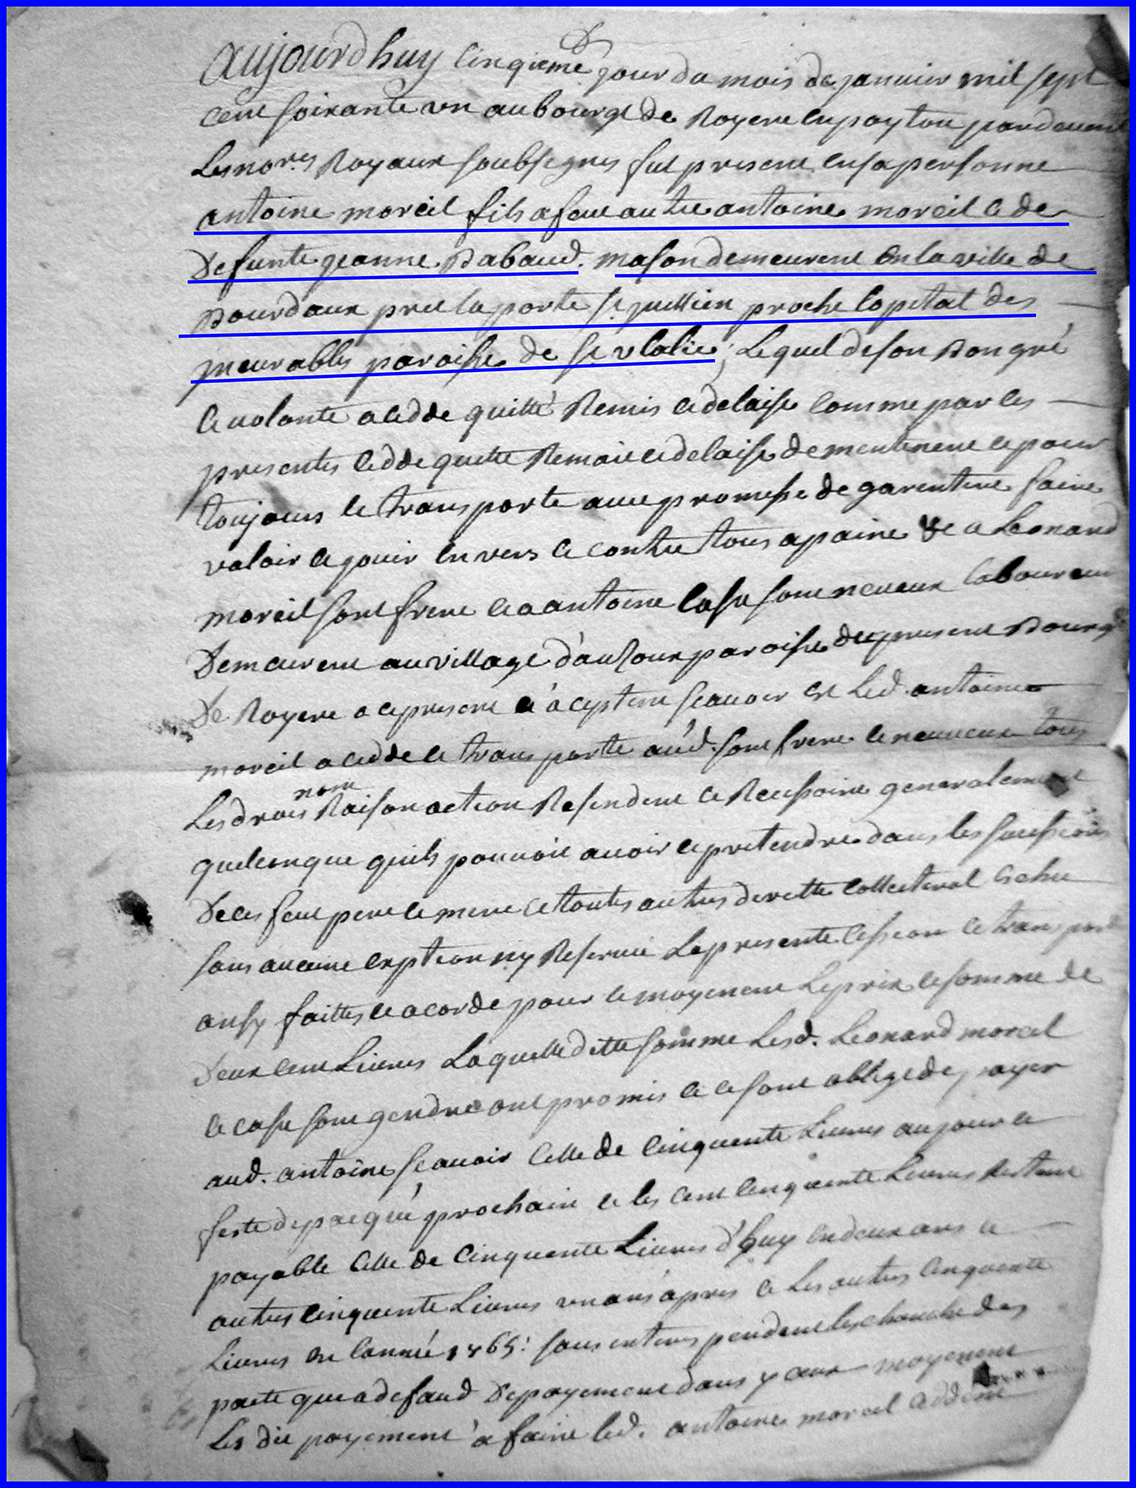 aujourdhuy cinqieme jour du mois de janvier mil sept
cent soixante un au bourgt de Royere en poytou pardevent
Les nores Royaux soubsegnes fut presene en sa personne
antoine moreil fils a feue autre antoine moreil e de
Defunte jeanne Rabaud. mason demeurent en la ville de
Bourdaux pres la porte st jullien proche lopital des
yncurables paroisse de ste vlalie; Lequel de son Bon gré
e volonte a cedde quitté Remis e delaisse comme par les
presentes cedde quitte Remaie e delaisse de mentenent e pour
toujours e transporte avec promesse de garentire faire
valoir e jouir en vers e contre tous a paine &c a Leonard
moreil sont frere e a antoine sont neveux laboureur
Demeurent au village paroisse du present Bourgt
De Royere a ce present e aceptent scavoir est Led. antoine
moreil a cedde e transporte aud. sont frere e neuveux tous
Les drois nom Raison action Resendent e Recisoire generalement
quelconque quils pouvoit avoir e pretendre dans les successions
De ces feue pere e mere e toutes autres derette collecteral echue
sans aucune exption ny Reserve La presente cession e transport
ansy faittes e acorde pour e moyenent Le prix e somme de
Deux cent Livres Laquelle ditte somme Lesd. Leonard moreil
e sont gendre ont promis e ce sont oblige de payer
aud. antoine scavoir celle de cinquente Livres au jour e
feste de paque prochain e les cent cinquente Livres Restent
payable celle de cinquente Livres d'huy en deux ans e
autres cinquente Livres un ans apres e Les autres cinquente
Livres en lannée 1765: sans enteres pendent les des
pacte que a defaud De payement dans yceux moyenent
Les dis payement a faire led. antoine moreil